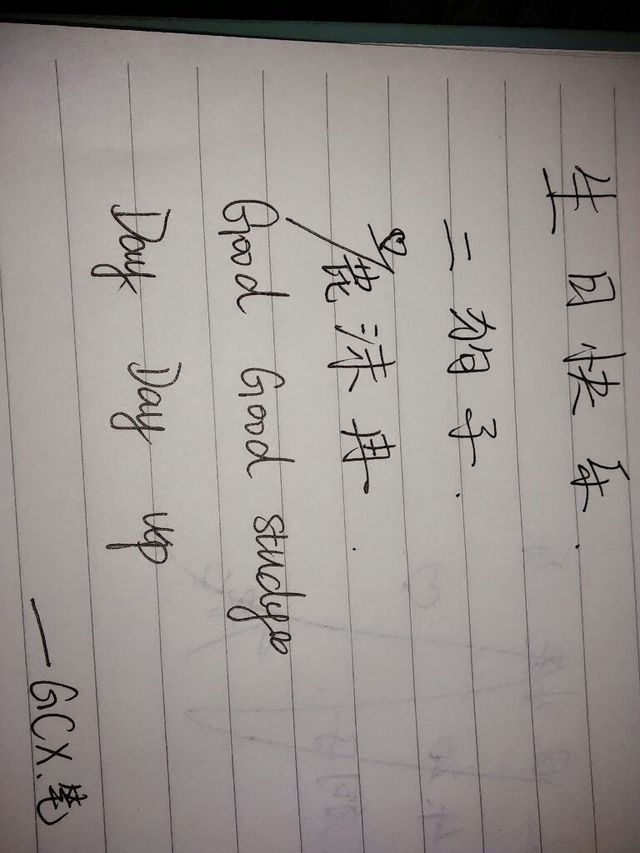 生日快乐.
二狗子.
沫冉.
Good Good study
Day Day up
—GCX.笔